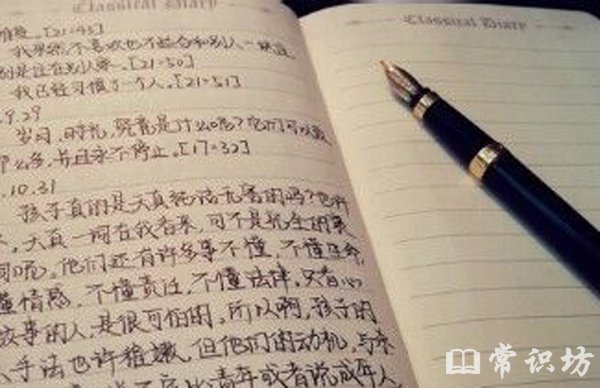 Classical Diary
Classical Diary
难受。[21:43]
我果然不喜欢也不适合和别人一块住
别是住在别人家。[21:50]
我已经习惯了一个人。[21:51]
9.29
岁月,时光,究竟是什么呢?它们可以
那么多,并且永不停止。[17:32]
10.31
孩子真的是天真纯洁无害的吗?
天真一词在我看来,可不是祝全的褒
词呢。他们还有许多事不懂,不懂
懂情感,不懂责任,不懂法律,只有心
故事的人,是很可怕的,所以啊,孩子的
手法也许稚嫩,但他们的动机,与
青年或者说成年人
常识坊